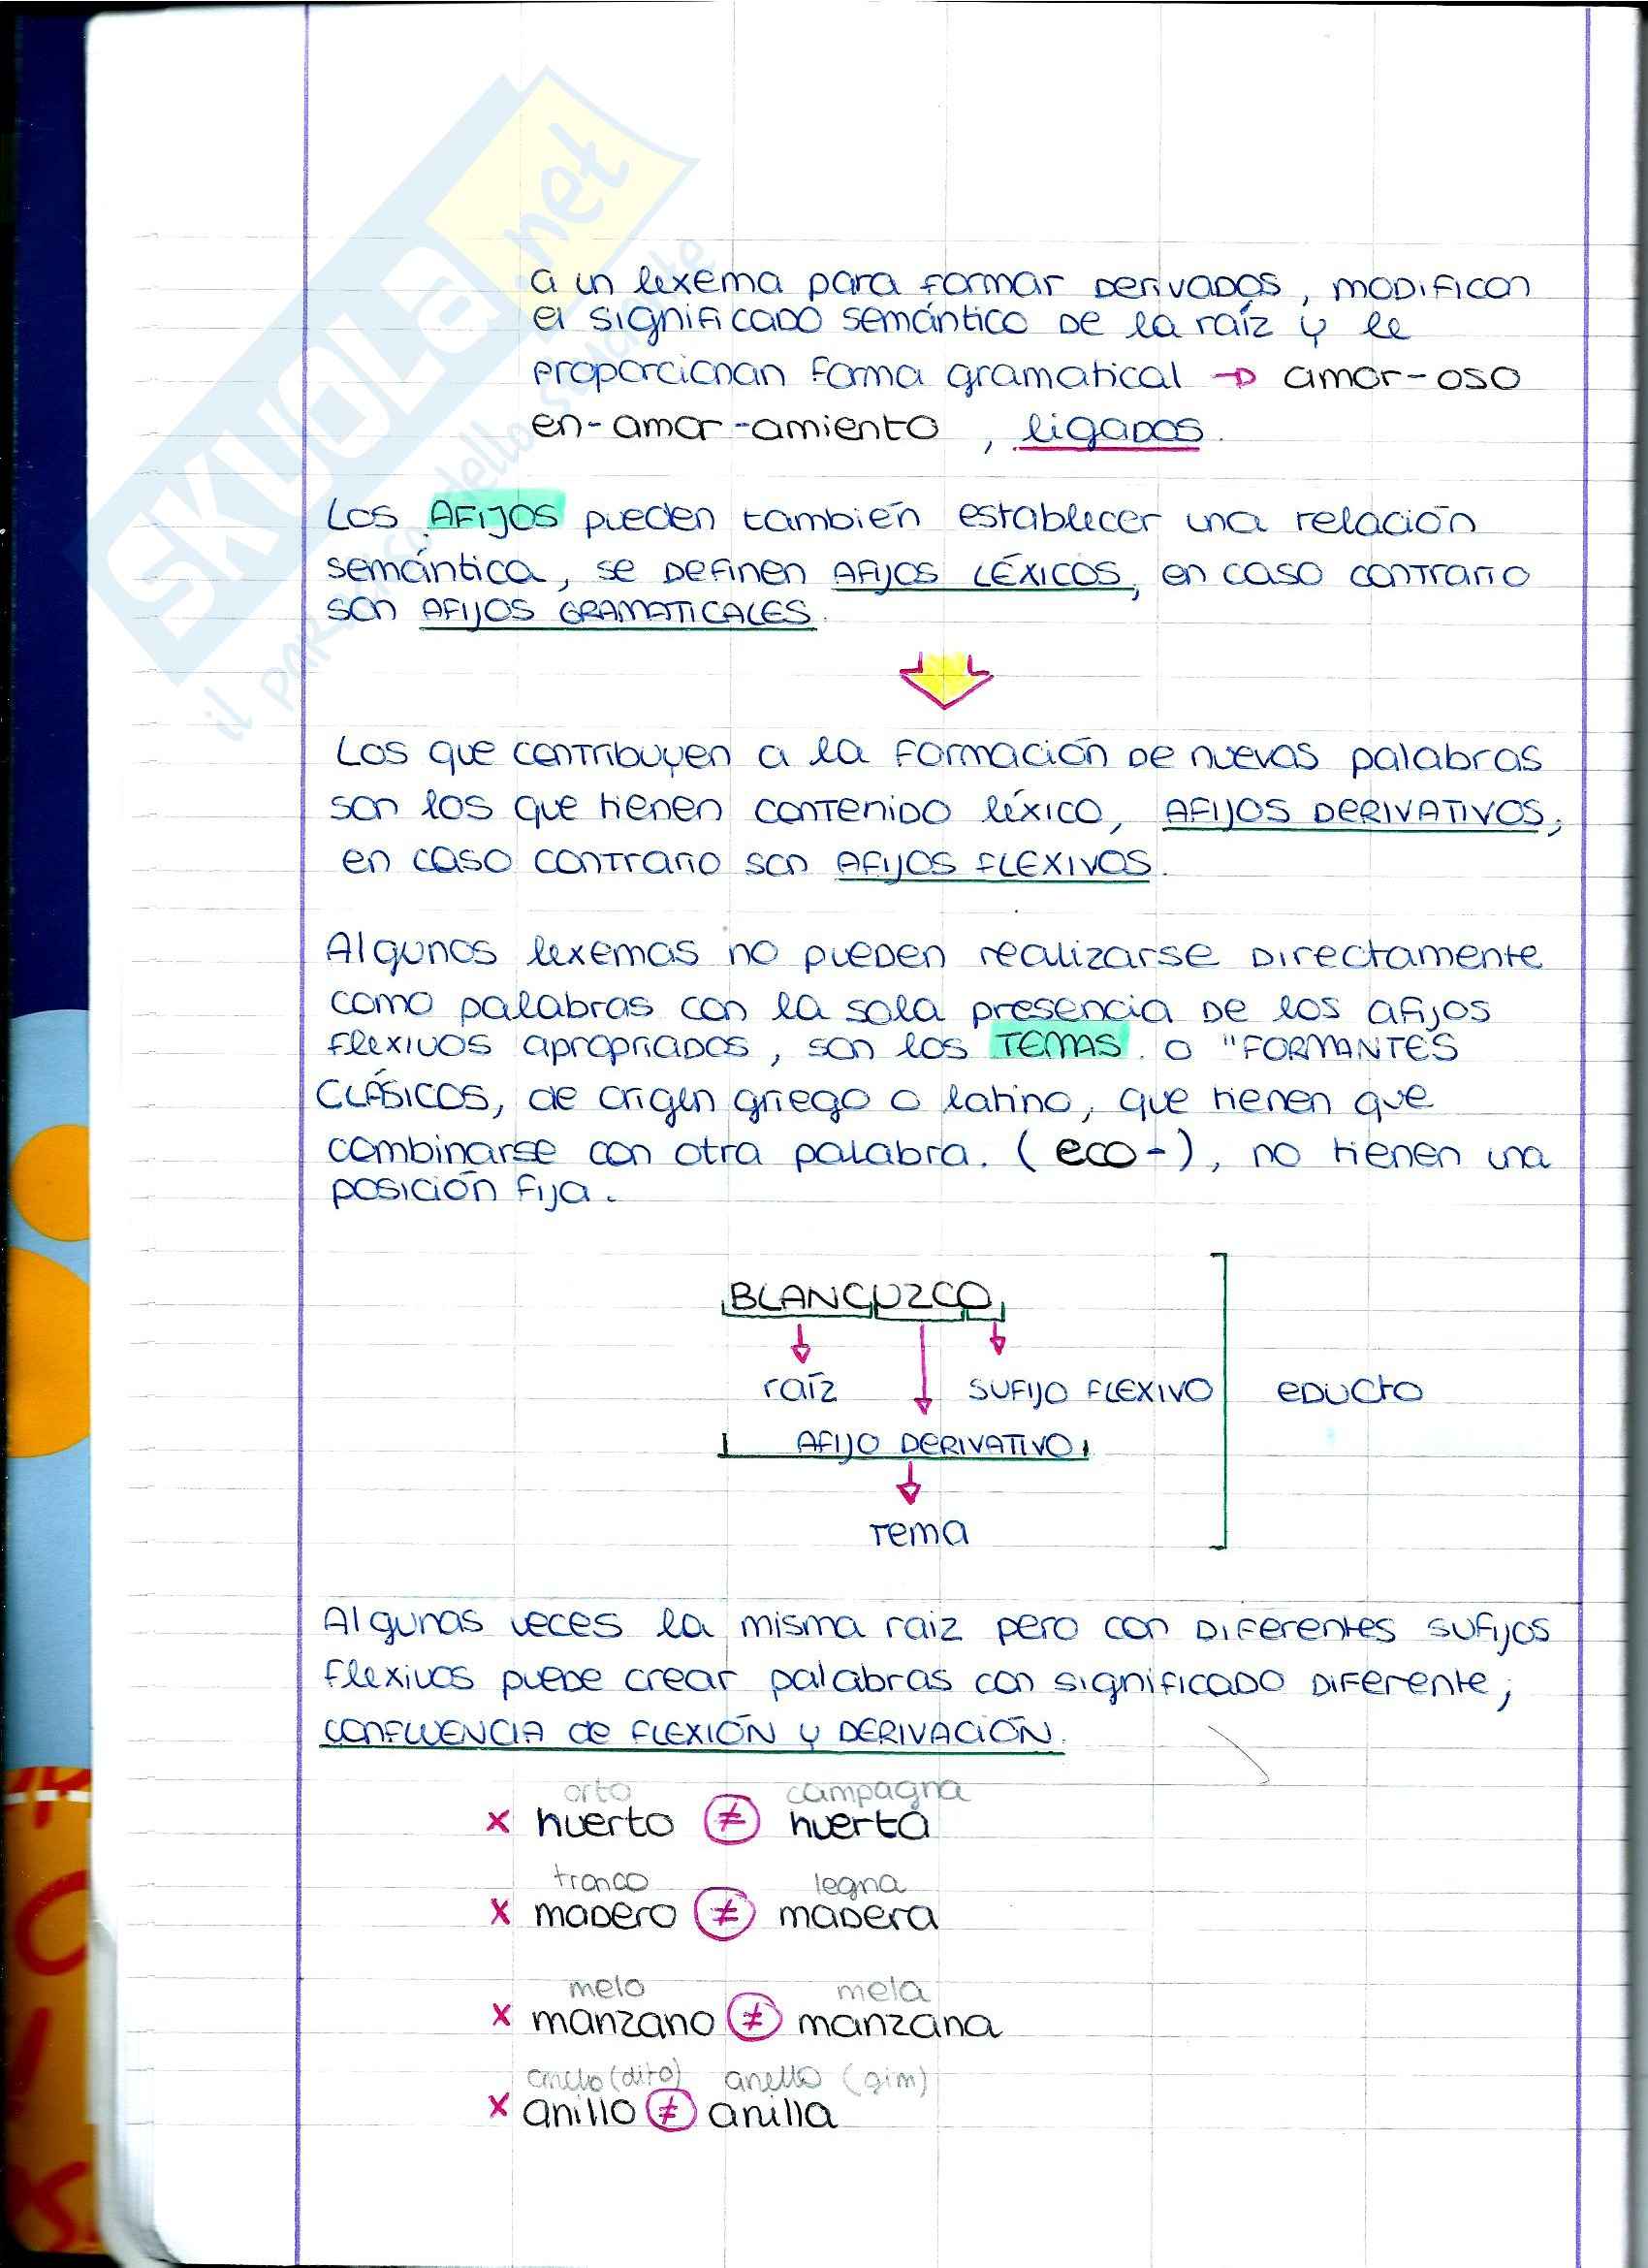 SKUOLA.net
il paradiso dello studente
a un lexema para formar derivados, modifican
el significado semántico de la raíz y le
proporcionan forma gramatical → amor-oso
en-amor-amiento, ligados.
Los AFIJOS pueden también establecer una relación
semántica, se definen AFIJOS LÉXICOS, en caso contrario
son AFIJOS GRAMATICALES.
Los que contribuyen a la formación de nuevas palabras
son los que tienen contenido léxico, AFIJOS DERIVATIVOS,
en caso contrario son AFIJOS FLEXIVOS.
Algunos lexemas no pueden realizarse directamente
como palabras con la sola presencia de los afijos
flexivos apropriados, son los TEMAS o "FORMANTES
CLÁSICOS, de origen griego o latino, que tienen que
combinarse con otra palabra. (eco-), no tienen una
posición fija.
BLANCUZCO
raíz SUFIJO FLEXIVO educto
AFIJO DERIVATIVO
Tema
Algunas veces la misma raiz pero con diferentes sufijos
flexivos puede crear palabras con significado diferente,
CONFLUENCIA de FLEXIÓN y DERIVACIÓN.
orto campagna
x huerto ≠ huerta
tronco legna
x madero ≠ madera
melo mela
x manzano ≠ manzana
anello (dito) anello (gim)
x anillo ≠ anilla